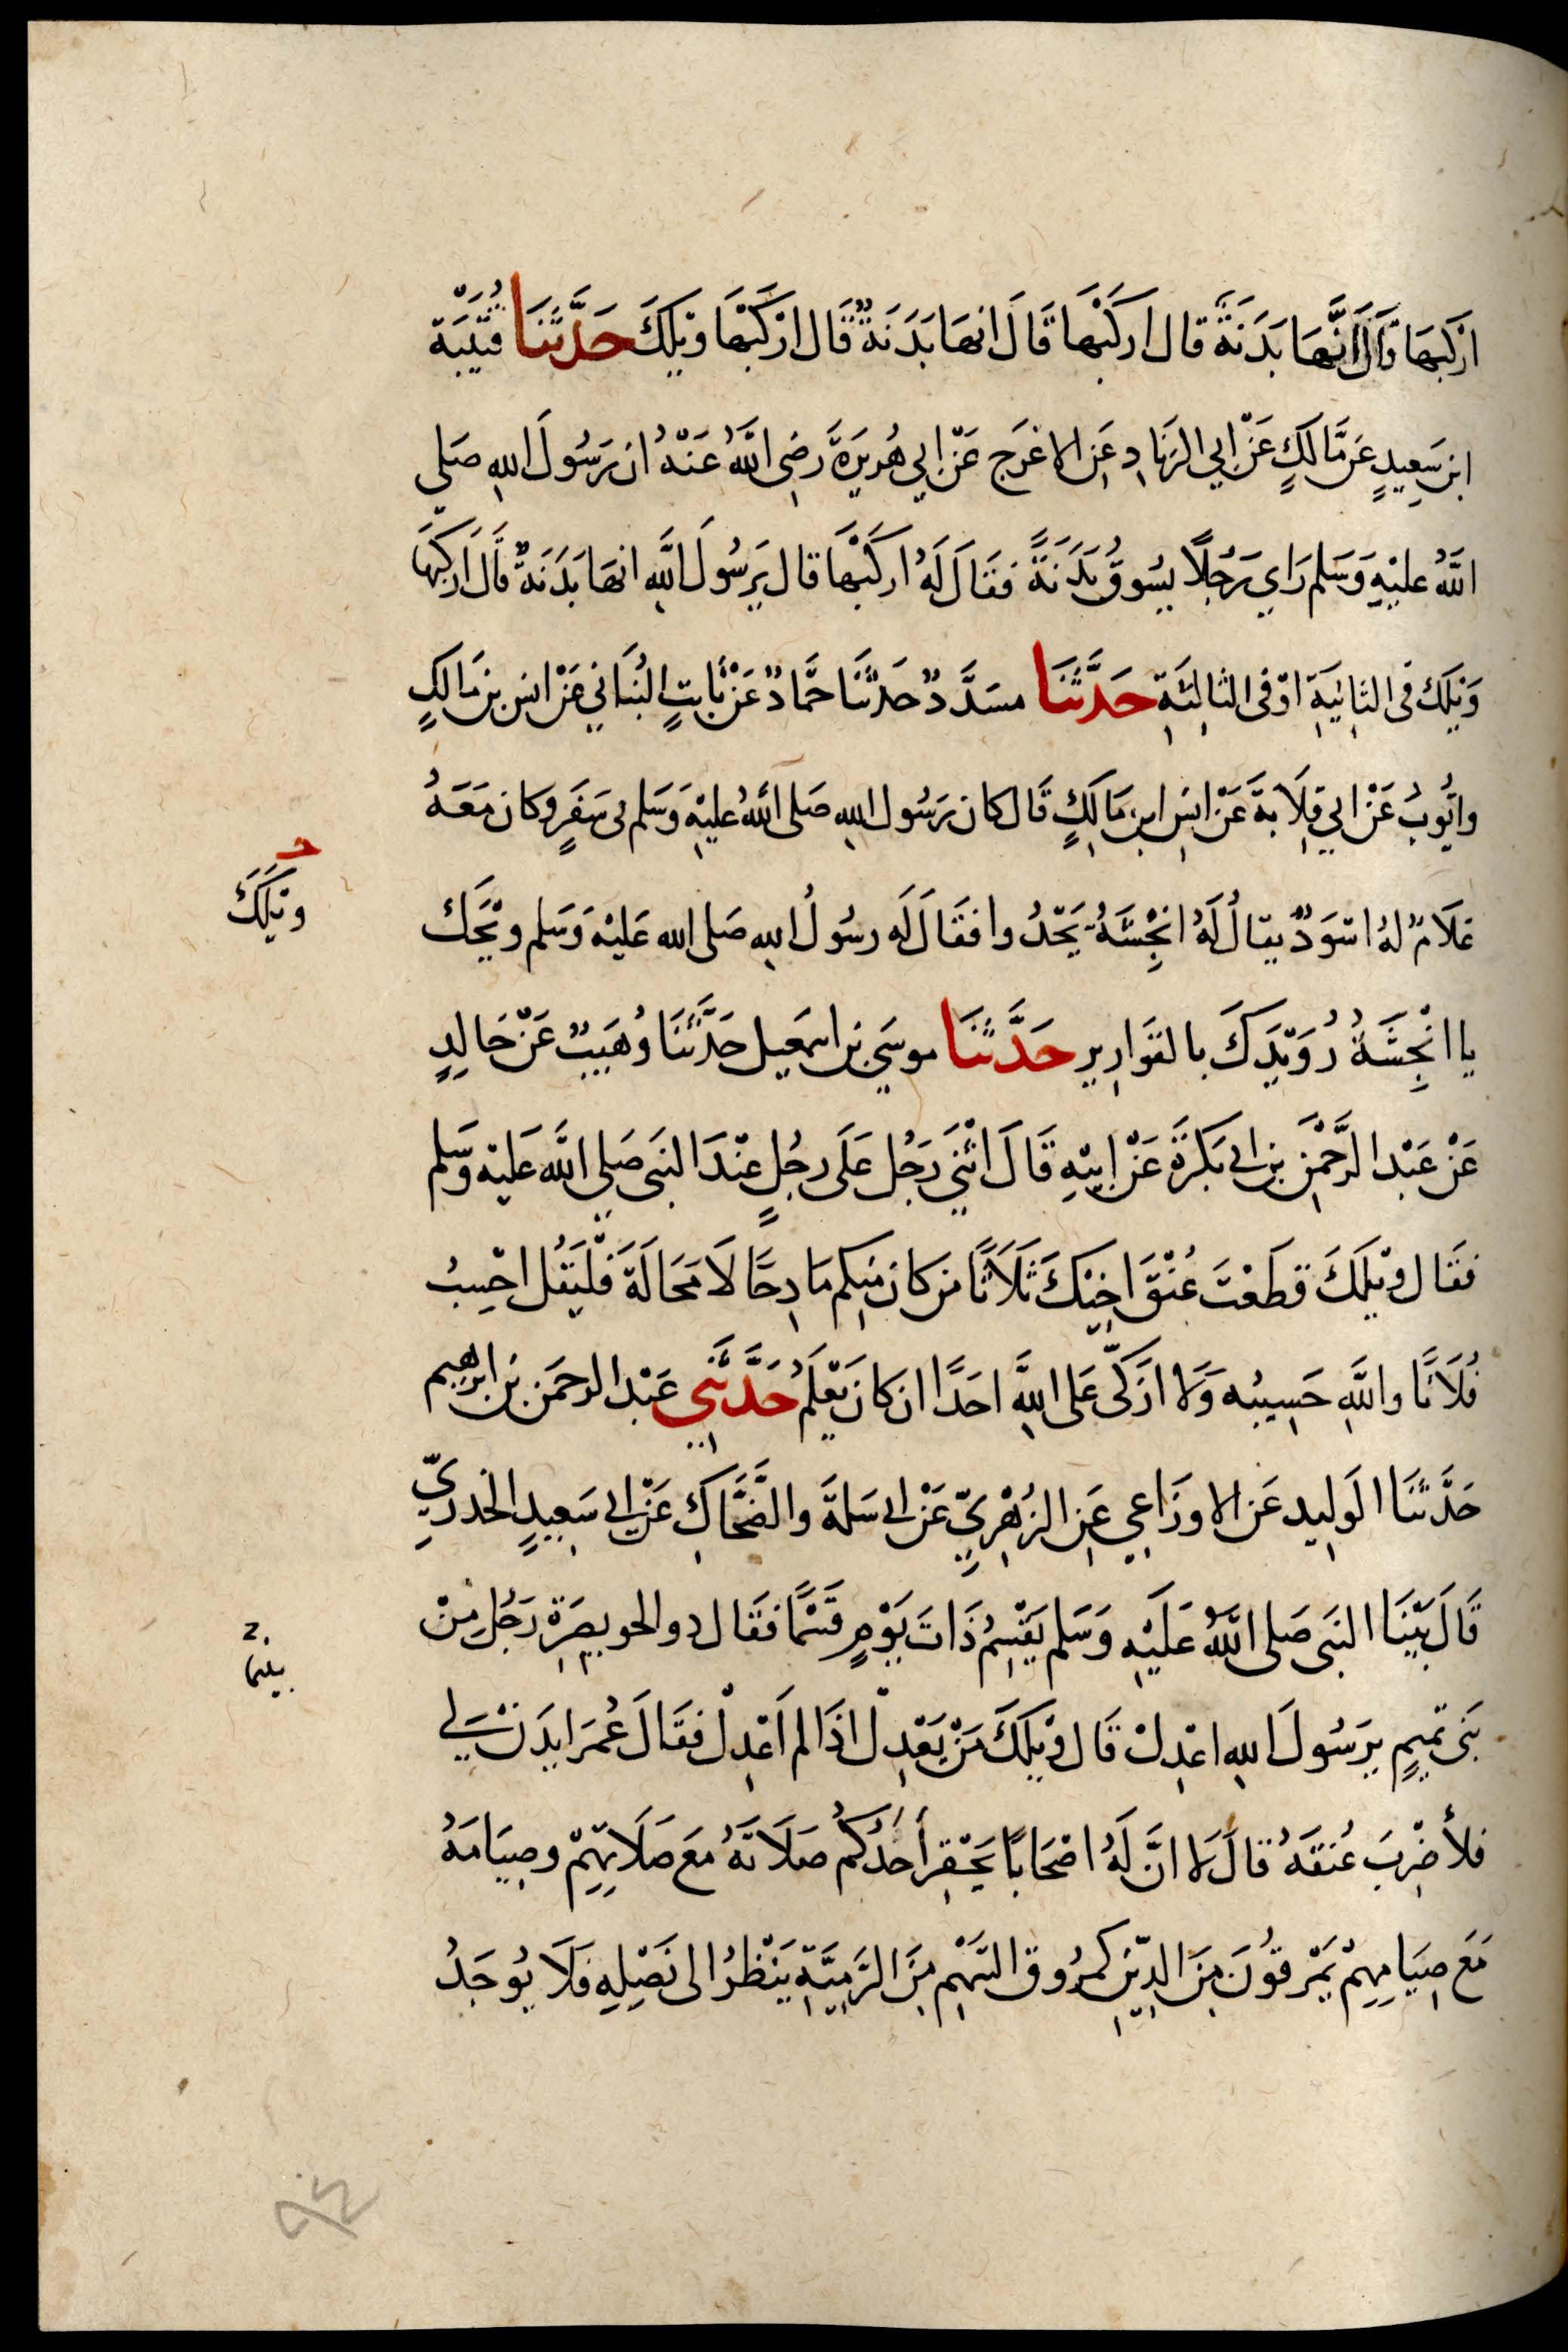 ارْكَبْهَا قَالَ اِنَّهَا بَدَنَةٌ قال ارْكَبْهَا قَالَ انهَا بَدَنَةٌ قَال ارْكَبْهَا وَيْلَكَ حَدَّثَنَا قُتَيْبَة
ابن سَعِيدٍ عَن مَّالَكٍ عَنْ ابي الزنَادِ عَنِ الاعْرَج عَنْ ابي هُريرَةَ رَضِى اللهُ عَنْهُ ان رَسُولَ اللهِ صَلي
اللَّهُ عليْهِ وَسَلم رَاي رَجُلاً يسُوقُ بَدَنَةً فقَالَ لَهُ اركَبْهَا قال يرَسُولَ اللَّهِ انهَا بَدَنَةٌ قَالَ ارْكَبْهَا
وَيْلَكَ فى الثانِيَةِ اوْ فى الثالِثَةِ حَدَّثَنَا مسَدَّدٌ حَدثَنَا حَمَّادٌ عَنْ ثَابتٍ البُنَاني عَنْ انس بن مَالكٍ
وايُّوبُ عَنْ ابي قِلَابةَ عَنْ انسِ ابنِ مَالِكٍ قَال كان رَسُول اللهِ صَلى اللهُ عليْهِ وَسَلم فى سَفَرٍ وكان مَعَهُ
غلَامٌ لهُ اسْوَدٌ يقالُ لَهُ انْجِشَةُ يَحْدُوا فقَالَ لَه رسُولُ اللهِ صَلى الله عَليْهِ وَسَلم ويْحَك
يا انْجِشَةُ رُوَيْدَكَ بالقوَارِيرِ حَدَّثَنَا موسَي بن اسمعيل حَدَّثَنَا وُهَيبٌ عَنْ خَالِدٍ
عَنْ عَبْد الرَّحْمَنِ بن ابى بَكرَةَ عَنْ ابِيْهِ قَالَ اثْنَي رَجُل عَلَى رجُلٍ عنْدَ النبَى صَلي اللَّه عَليْه وَسَلم
فقَال وَيْلَكَ قطَعْتَ عُنْقَ اخِيْكَ ثلَاثًا من كان مِنكم مَادِحًا لَا مَحَالَةَ فَلْيَقُل احْسِبُ
فُلَانًا واللَّهِ حَسِيبُه وَلا ازَكّى عَلى اللَّهِ احَدًا ان كانَ يَعْلَمُ حَدَّثَنِي عَبْد الرحمَن بن ابرهيم
حَدَّثنَا الوَلِيد عَن الاوزَاعِي عَنِ الزُهْرِيّ عَنْ ابى سَلمةَ والضَّحَّاكِ عَنْ ابى سَعِيدٍ الخدريِّ
قَالَ بَيْنَا النبَى صَلى اللَّهُ عَلَيْهِ وَسَلم يَقْسِمُ ذَاتَ يَوْمٍ قَسْمًا فقَال ذو الخويصِرَةِ رَجُل مِنْ
بَنى تمِيمٍ يرَسُولَ اللهِ اعْدِلْ قَال وَيْلَكَ مَنْ يَعْدِلْ اذَا لم اَعْدِلْ فقَالَ عُمَر ايذَنْ لي
فلأضْرِبَ عُنقَهُ قالَ لا انَّ لَهُ اصْحَابًا يَحْقِر أحَدُكُمْ صَلَاتَهُ مَعَ صَلَاتِهِمْ وصِيَامَهُ
مَعَ صِيَامِهِمْ يَمْرقُونَ مِنَ الدِّيْنِ كمرُوق السَّهْمِ مِنَ الرَّمِيَّةِ يَنْظرُ الى نَصْلِهِ فَلَا يُوجَدُ
ويْلَكَ